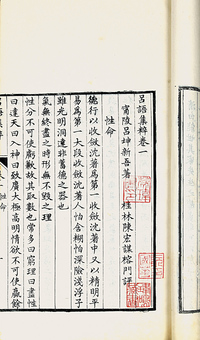 呂語集粹卷一
寧陵呂坤新吾著 桂林陳宏謀榕門評
性命
德行以收斂沈著為第一收斂沈著中又以精明平
易為第一大段收斂沈著人怕含糊怕深險淺浮子
雖光明洞達非蓄德之器也
氣無終盡之時形無不毀之理
性分不可使虧欠故其取數也常多曰窮理曰盡性
曰達天曰入神曰致廣大極高明情欲不可使贏餘